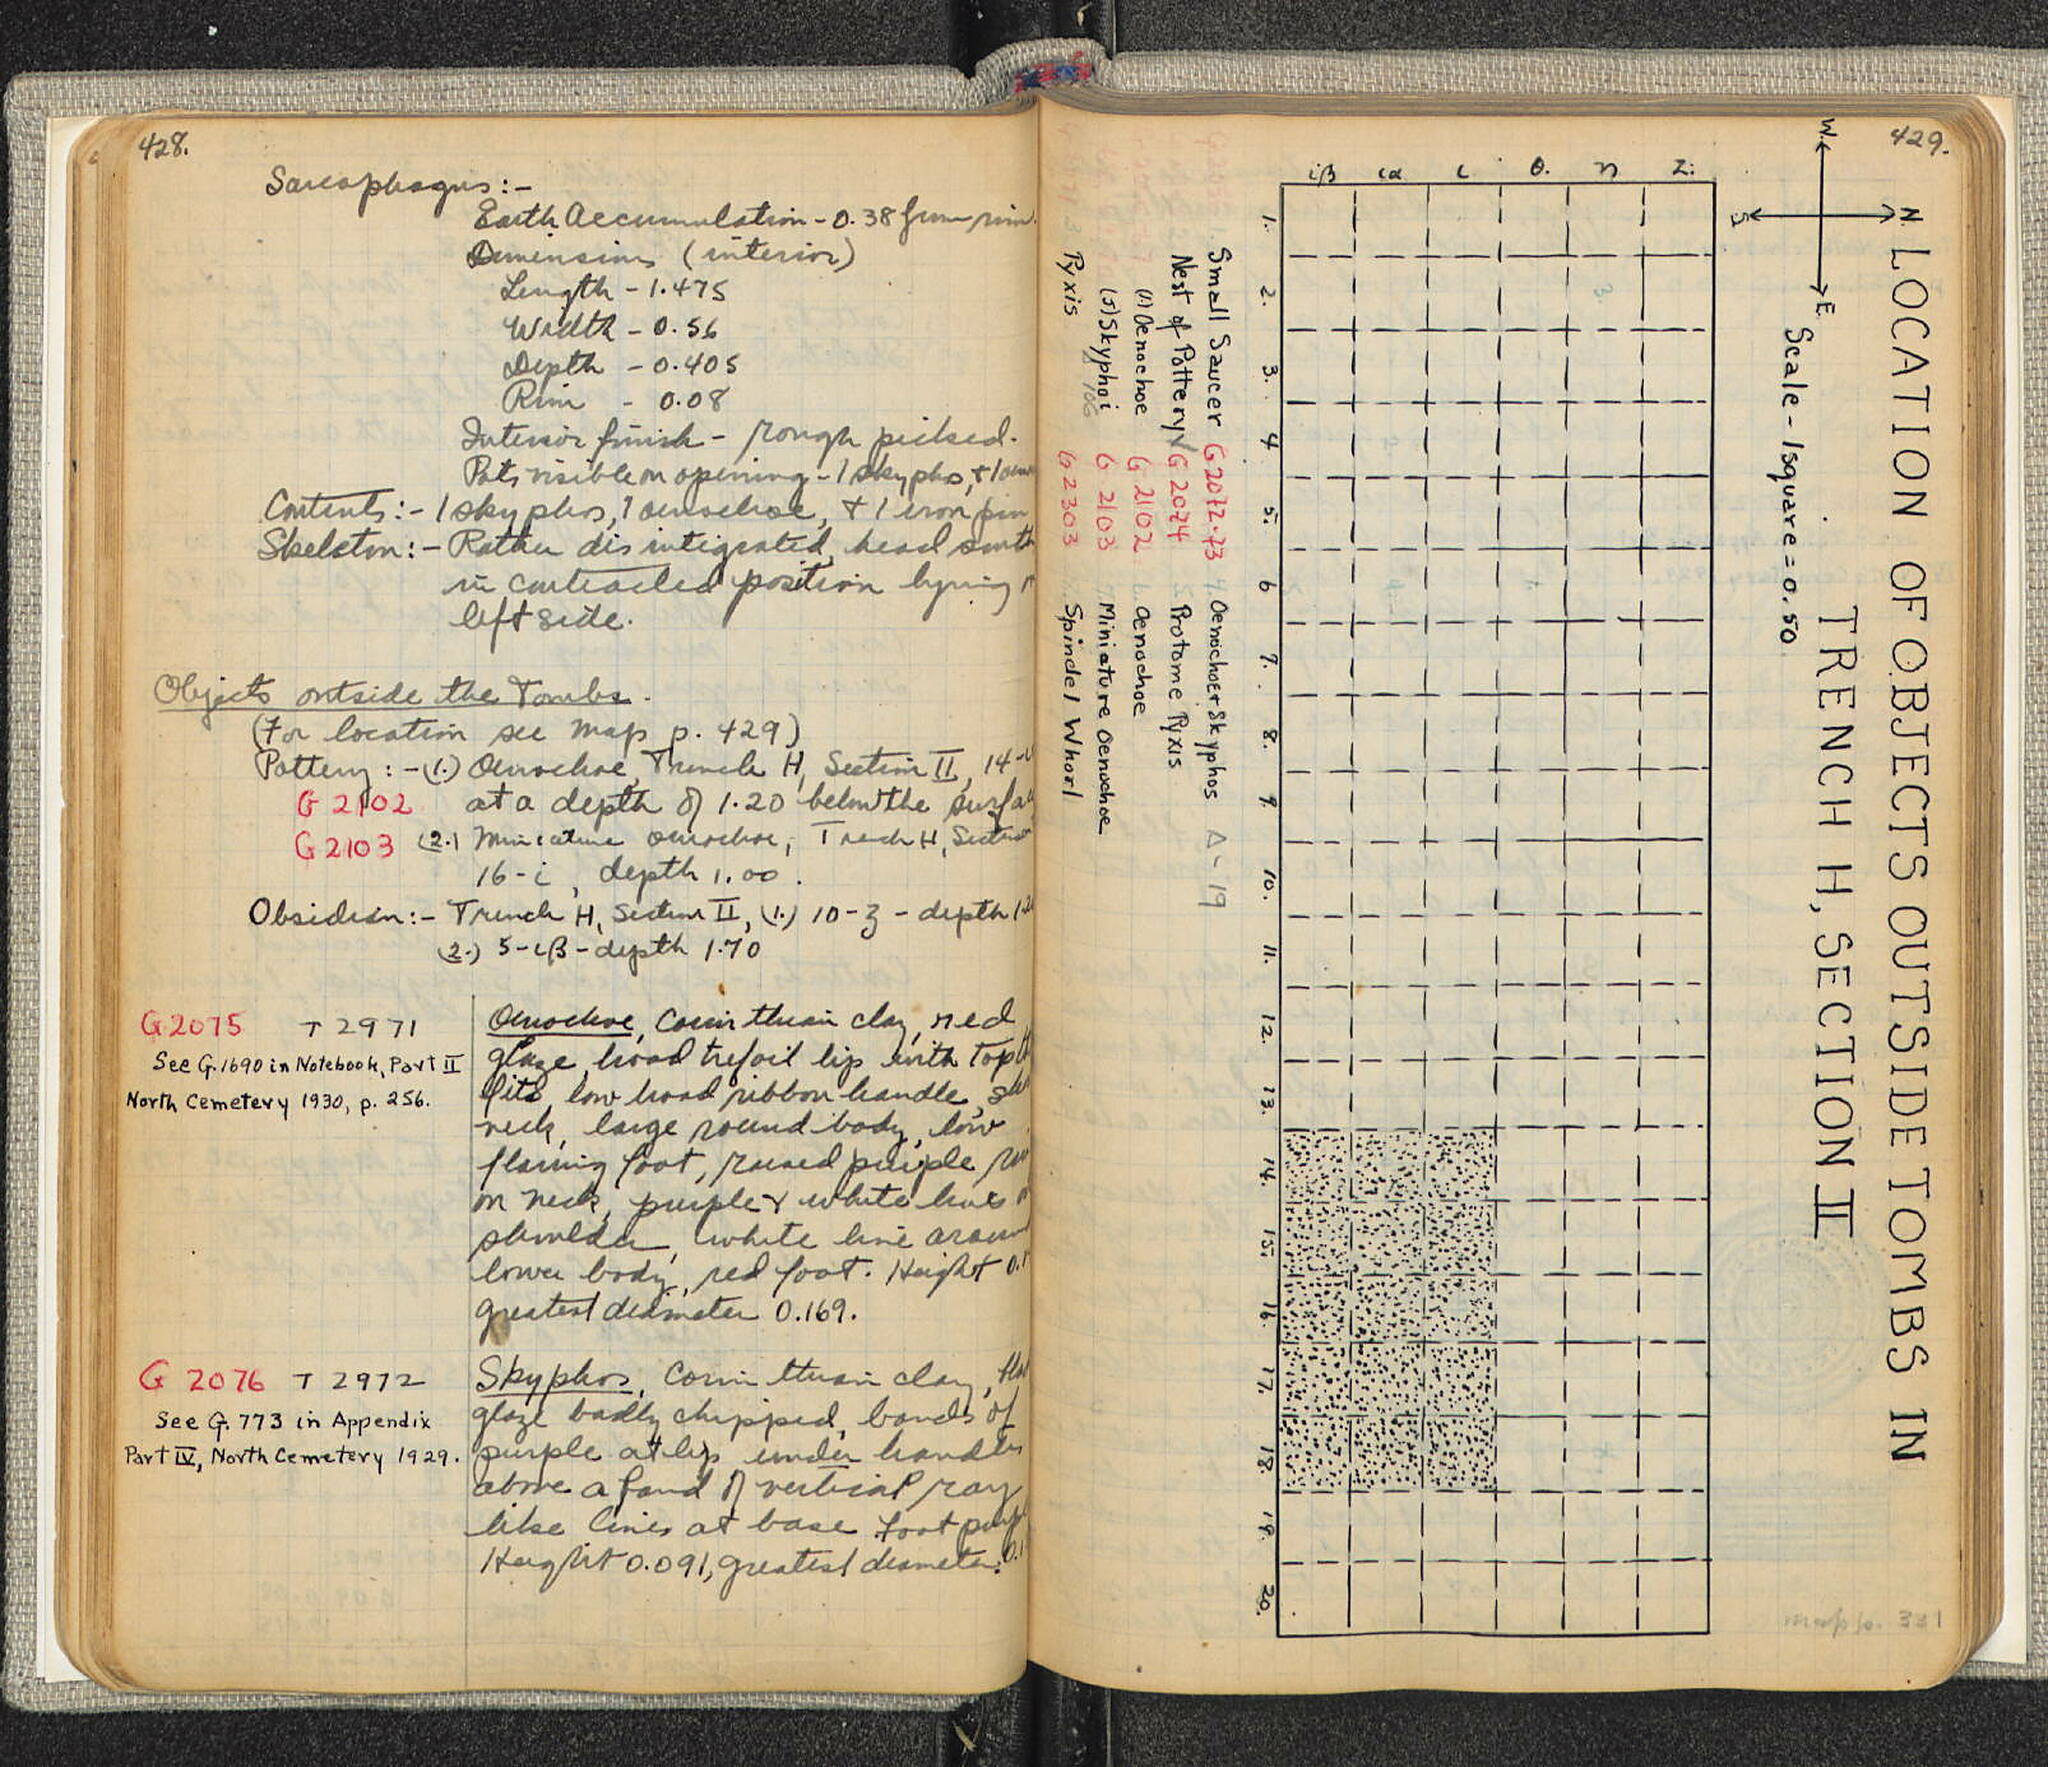 428.
Sarcophagus:-
Earth Accumulation - 0.38 from rim.
Dimensions (interior)
Length - 1.475
Width - 0.56
Depth - 0.405
Rim - 0.08
Interior finish - rough picked.
Pots visible on opening - 1 skyphos, + 1
Contents:- 1 skyphos, 1 oenochoe, + 1 iron pin
Skeleton:- Rather disintigrated, head south
in contracted position lying
left side.
Objects outside the Tombs.
(For location see map p. 429)
Pottery:- (1.) Oenochoe, Trench H, Section II, 14-
G 2102 at a depth of 1.20 below the surface
G 2103 (2.) Miniature oenochoe, Trench H, Section
16-ι, depth 1.00.
Obsidian:- Trench H, Section II, (1.) 10-ζ - depth
(2.) 5-ιβ - depth 1.70
G 2075 T 2971 Oenochoe, Corinthian clay, red
See G.1690 in Notebook, Part II glaze, broad trefoil lip with top
North Cemetery 1930, p. 256. low broad ribbon handle,
neck, large round body, low
flaring foot, raised purple
on neck, purple & white lines
shoulder, white line around
lower body, red foot. Height
greatest diameter 0.169.
G 2076 T 2972 Skyphos, Corinthian clay,
See G. 773 in Appendix glaze badly chipped, bands of
Part IV, North Cemetery 1929. purple at lip under handles
above a band of vertical ray
like lines at base foot purple
Height 0.091, greatest diameter
429.
LOCATION OF OBJECTS OUTSIDE TOMBS IN
TRENCH H, SECTION II
Scale - 1 square = 0.50
W. N. E. S.
ιβ ια ι θ. η ζ.
1.
2.
3.
4
5.
6
7.
8.
9.
10.
11.
12.
13.
14.
15.
16
17.
18.
19.
20.
Small Saucer G 2072-73 4. Oenochoe & Skyphos Δ-19
Nest of Pottery √ G 2074 5. Protome Pyxis
(1) Oenochoe G 2102 6. Oenochoe
(5) Skyphoi G 2103 Miniature Oenochoe
Pyxis G 2303 Spindel Whorl
map p. 331